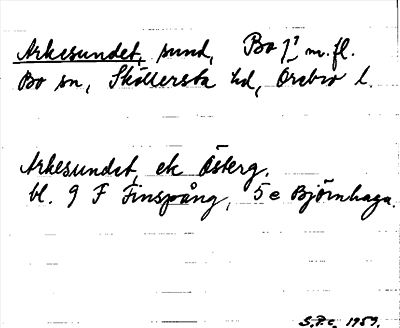 Arkesundet, sund, Bo 1:1 m.fl.
Bo sn, Sköllersta hd, Örebro l.
Arkesundet, ek Österg.
bl. 9 F Finspång, 5 e Björnhaga.
S.P.C. 1959.